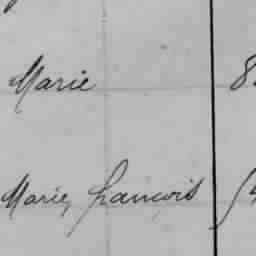 Marie 8
Marie, francois